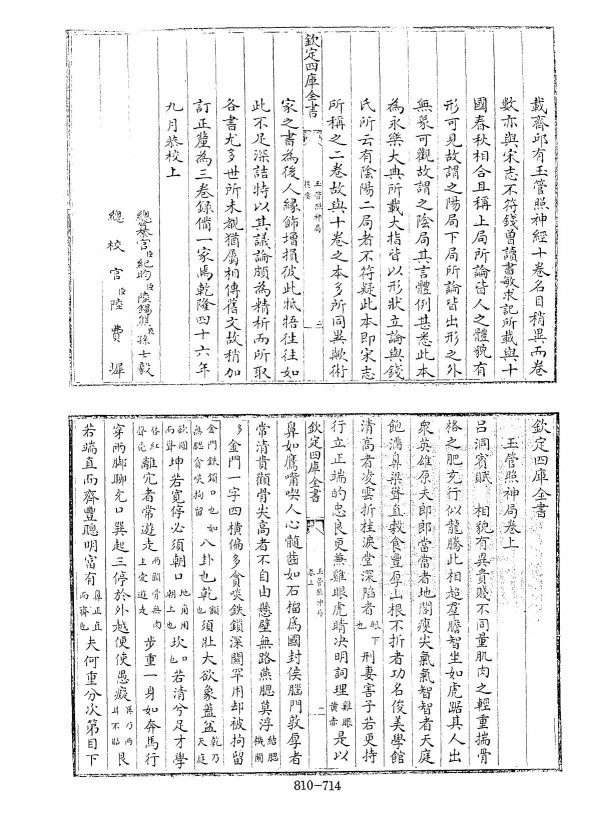 載齊邱有玉管照神經十卷名目稍異而卷
數亦與宋志不符錢曽讀書敏求記所載與十
國春秋相合且稱上局所論皆人之體貌有
形可見故謂之陽局下局所論皆出形之外
無象可觀故謂之陰局其言體例甚悉此本
為永樂大典所載大指皆以形狀立論與錢
氏所云有陰陽二局者不符疑此本即宋志
所稱之二卷故與十卷之本多所同異歟術
欽定四庫全書
玉管照神局
提要
三
家之書為後人緣飾増損彼此牴牾往往如
此不足深詰特以其議論頗為精析而所取
各書尤多世所未覩猶屬相傳舊文故稍加
訂正釐為三卷錄備一家焉乾隆四十六年
九月恭校上
總纂官臣紀昀臣陸錫熊臣孫士毅
總校官臣陸費墀
欽定四庫全書
玉管照神局卷上
呂洞賓賦 相貌有異貴賤不同量肌肉之輕重揣骨
格之肥充行似龍騰此相超羣膽智坐如虎踞其人出
衆英雄原夫郎郎當當者地閣瘦尖氣氣智智者天庭
飽滿鼻梁聳直穀食豐厚山根不折者功名俊美學館
清高者凌雲折桂淚堂深陷者眼下也刑妻害子若更持
行立正端的忠良更兼雞眼虎睛决明詞理雞眼黄赤是以
欽定四庫全書
玉管照神局
卷上
一
鼻如鷹嘴喫人心髓齒如石榴爲國封侯腦門敦厚者
常清貴顴骨尖高者不自由懸壁無路燕腮莫浮結腮機關
多金門一字四横偏多貪啖鉄鎖深闗罕用却被拘留
金門鉄鎖口也如無腮貪啖拘留八卦也乾額也須壯大欲象蓋盆乾乃天庭
欲圓而聳坤若寛停必須朝口地角用朝上也坎口也若清兮足才學
唇紅齒亮離宂者常遊走兩顴骨無肉主爱遊走步重一身如奔馬行
穿兩脚聊宂口巽起三停於外越便使愚癡巽乃兩耳不貼艮
若端直而齊豐聰明富有鼻正直而齊也夫何重分次第目下
810-714